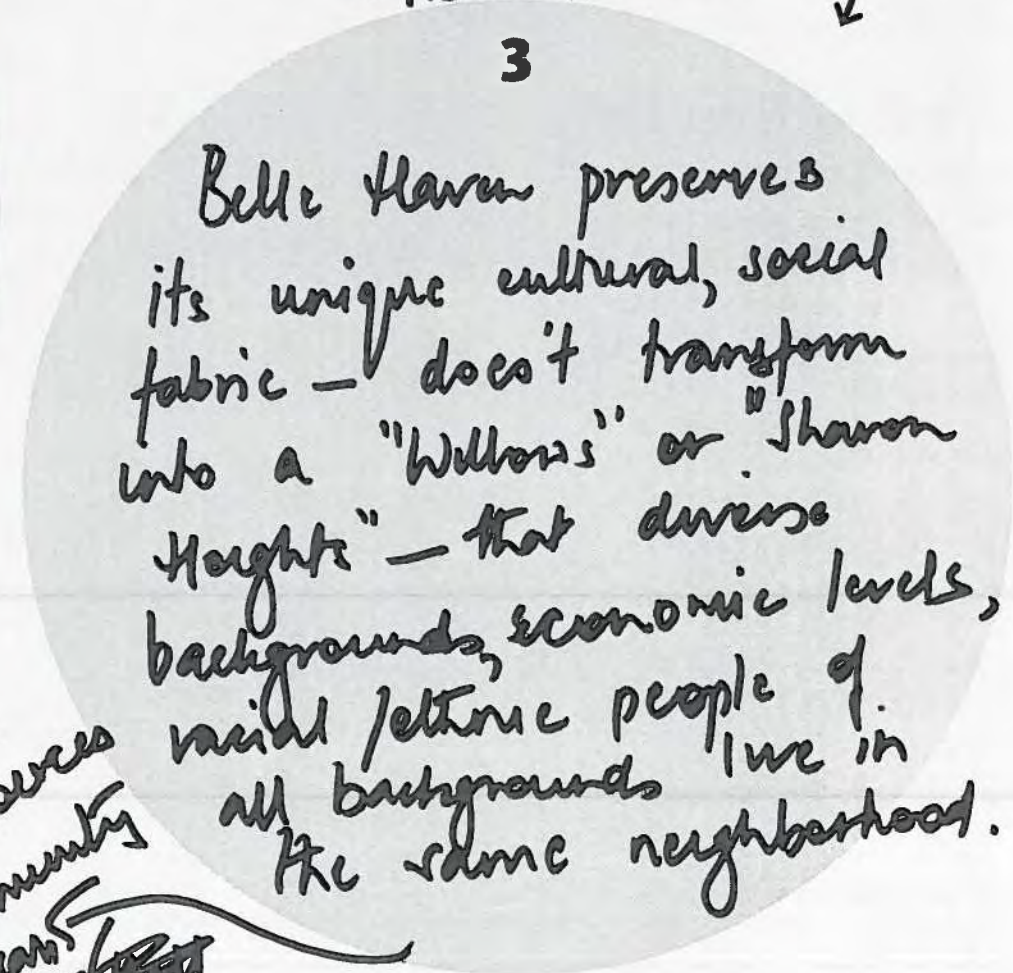 3
Belle Haven preserves
its unique cultural, social
fabric — does't transform
into a "Willows" or "Sharon
Heights" — that diverse
backgrounds, economic levels,
racial / ethnic people of
all backgrounds live in
the same neighborhood.